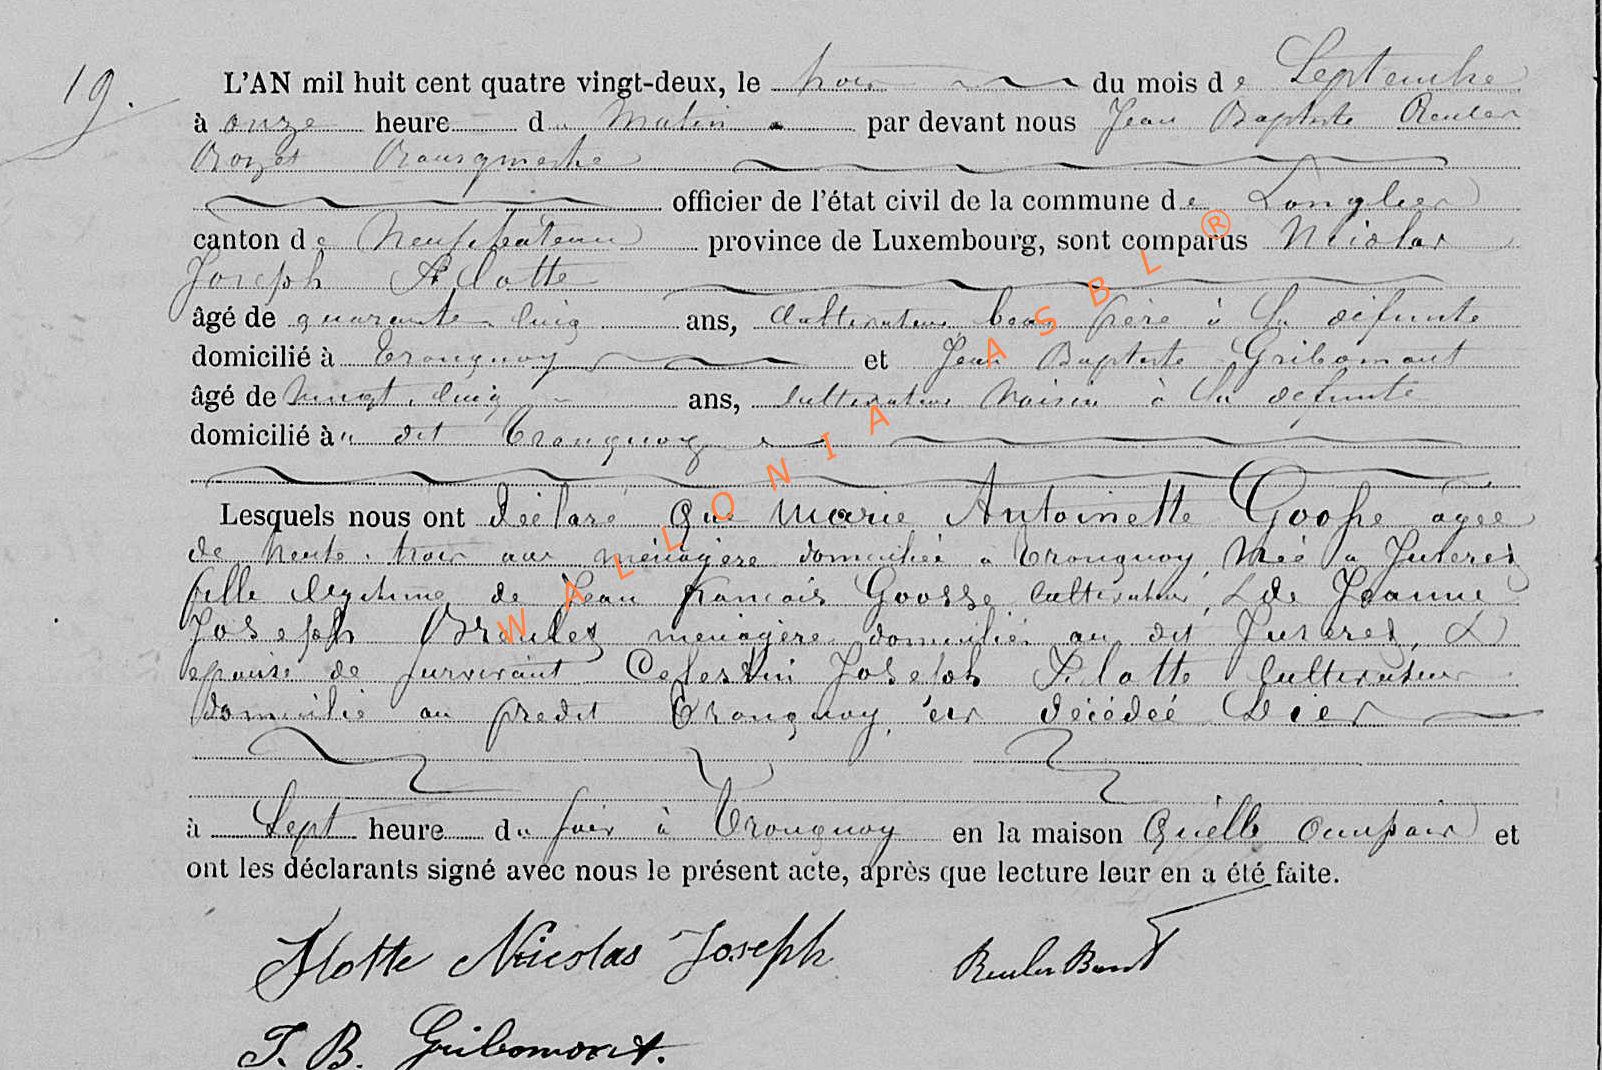 19.
L'AN mil huit cent quatre vingt-deux, le trois du mois de Septembre
à onze heure du Matin par devant nous Jean Baptiste Reuler
Bourgmestre
officier de l'état civil de la commune de Longlier
canton de Neufchâteau province de Luxembourg, sont comparus Nicolas
Joseph Flotte
âgé de quarante cinq ans, Cultivateur beau frère à la défunte
domicilié à Tronquoy et Jean Baptiste Gribomont
âgé de vingt cinq ans, cultivateur voisin à la défunte
domicilié au dit Tronquoy
Lesquels nous ont déclaré que Marie Antoinette Goosse agée
de trente trois ans ménagère domiciliée à Tronquoy, née à Juseret
fille légitime de Jean François Goosse cultivateur, & de Jeanne
Joseph ménagère domiciliés au dit Juseret, &
epouse de survivant Celestin Joseph Flotte Cultivateur
domicilié au predit Tronquoy, est décédée hier
à Sept heure du soir à Tronquoy en la maison Qu'elle occupait et
ont les déclarants signé avec nous le présent acte, après que lecture leur en a été faite.
Flotte Nicolas Joseph Reuler
J. B. Gribomont.
WALLONIA ASBL ®